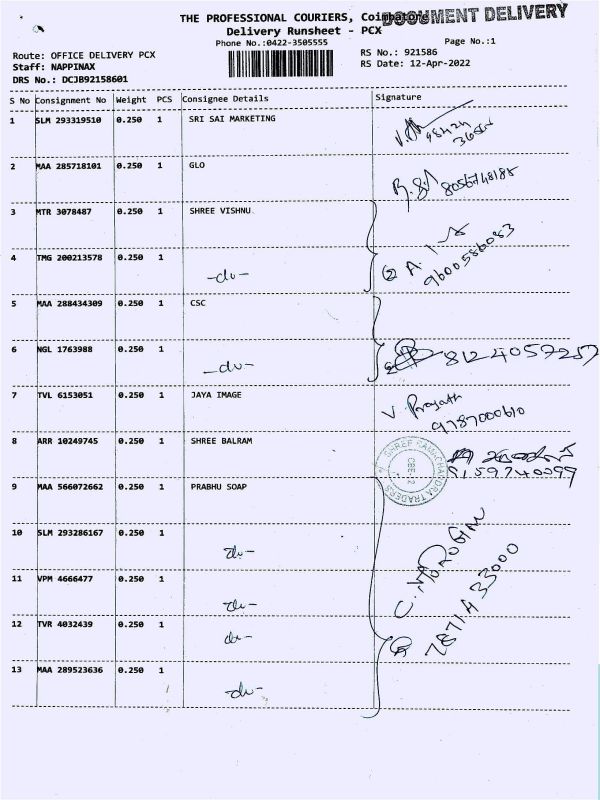 THE PROFESSIONAL COURIERS, Coimbatore
DOCUMENT DELIVERY
Delivery Runsheet - PCX
Phone No.:0422-3505555
Page No.:1
Route: OFFICE DELIVERY PCX
RS No.: 921586
Staff: NAPPINAX
RS Date: 12-Apr-2022
DRS No.: DCJB92158601
S No Consignment No Weight PCS Consignee Details Signature
1 SLM 293319510 0.250 1 SRI SAI MARKETING
2 MAA 285718101 0.250 1 GLO
8056748185
3 MTR 3078487 0.250 1 SHREE VISHNU
4 TMG 200213578 0.250 1
-do-
9600586083
5 MAA 288434309 0.250 1 CSC
6 NGL 1763988 0.250 1
-do-
8124057257
7 TVL 6153051 0.250 1 JAYA IMAGE
9787000610
8 ARR 10249745 0.250 1 SHREE BALRAM
SHREE RAMCHANDRA TRADERS
CBE-12
9159740099
9 MAA 566072662 0.250 1 PRABHU SOAP
10 SLM 293286167 0.250 1
-do-
11 VPM 4666477 0.250 1
-do-
12 TVR 4032439 0.250 1
-do-
13 MAA 289523636 0.250 1
-do-